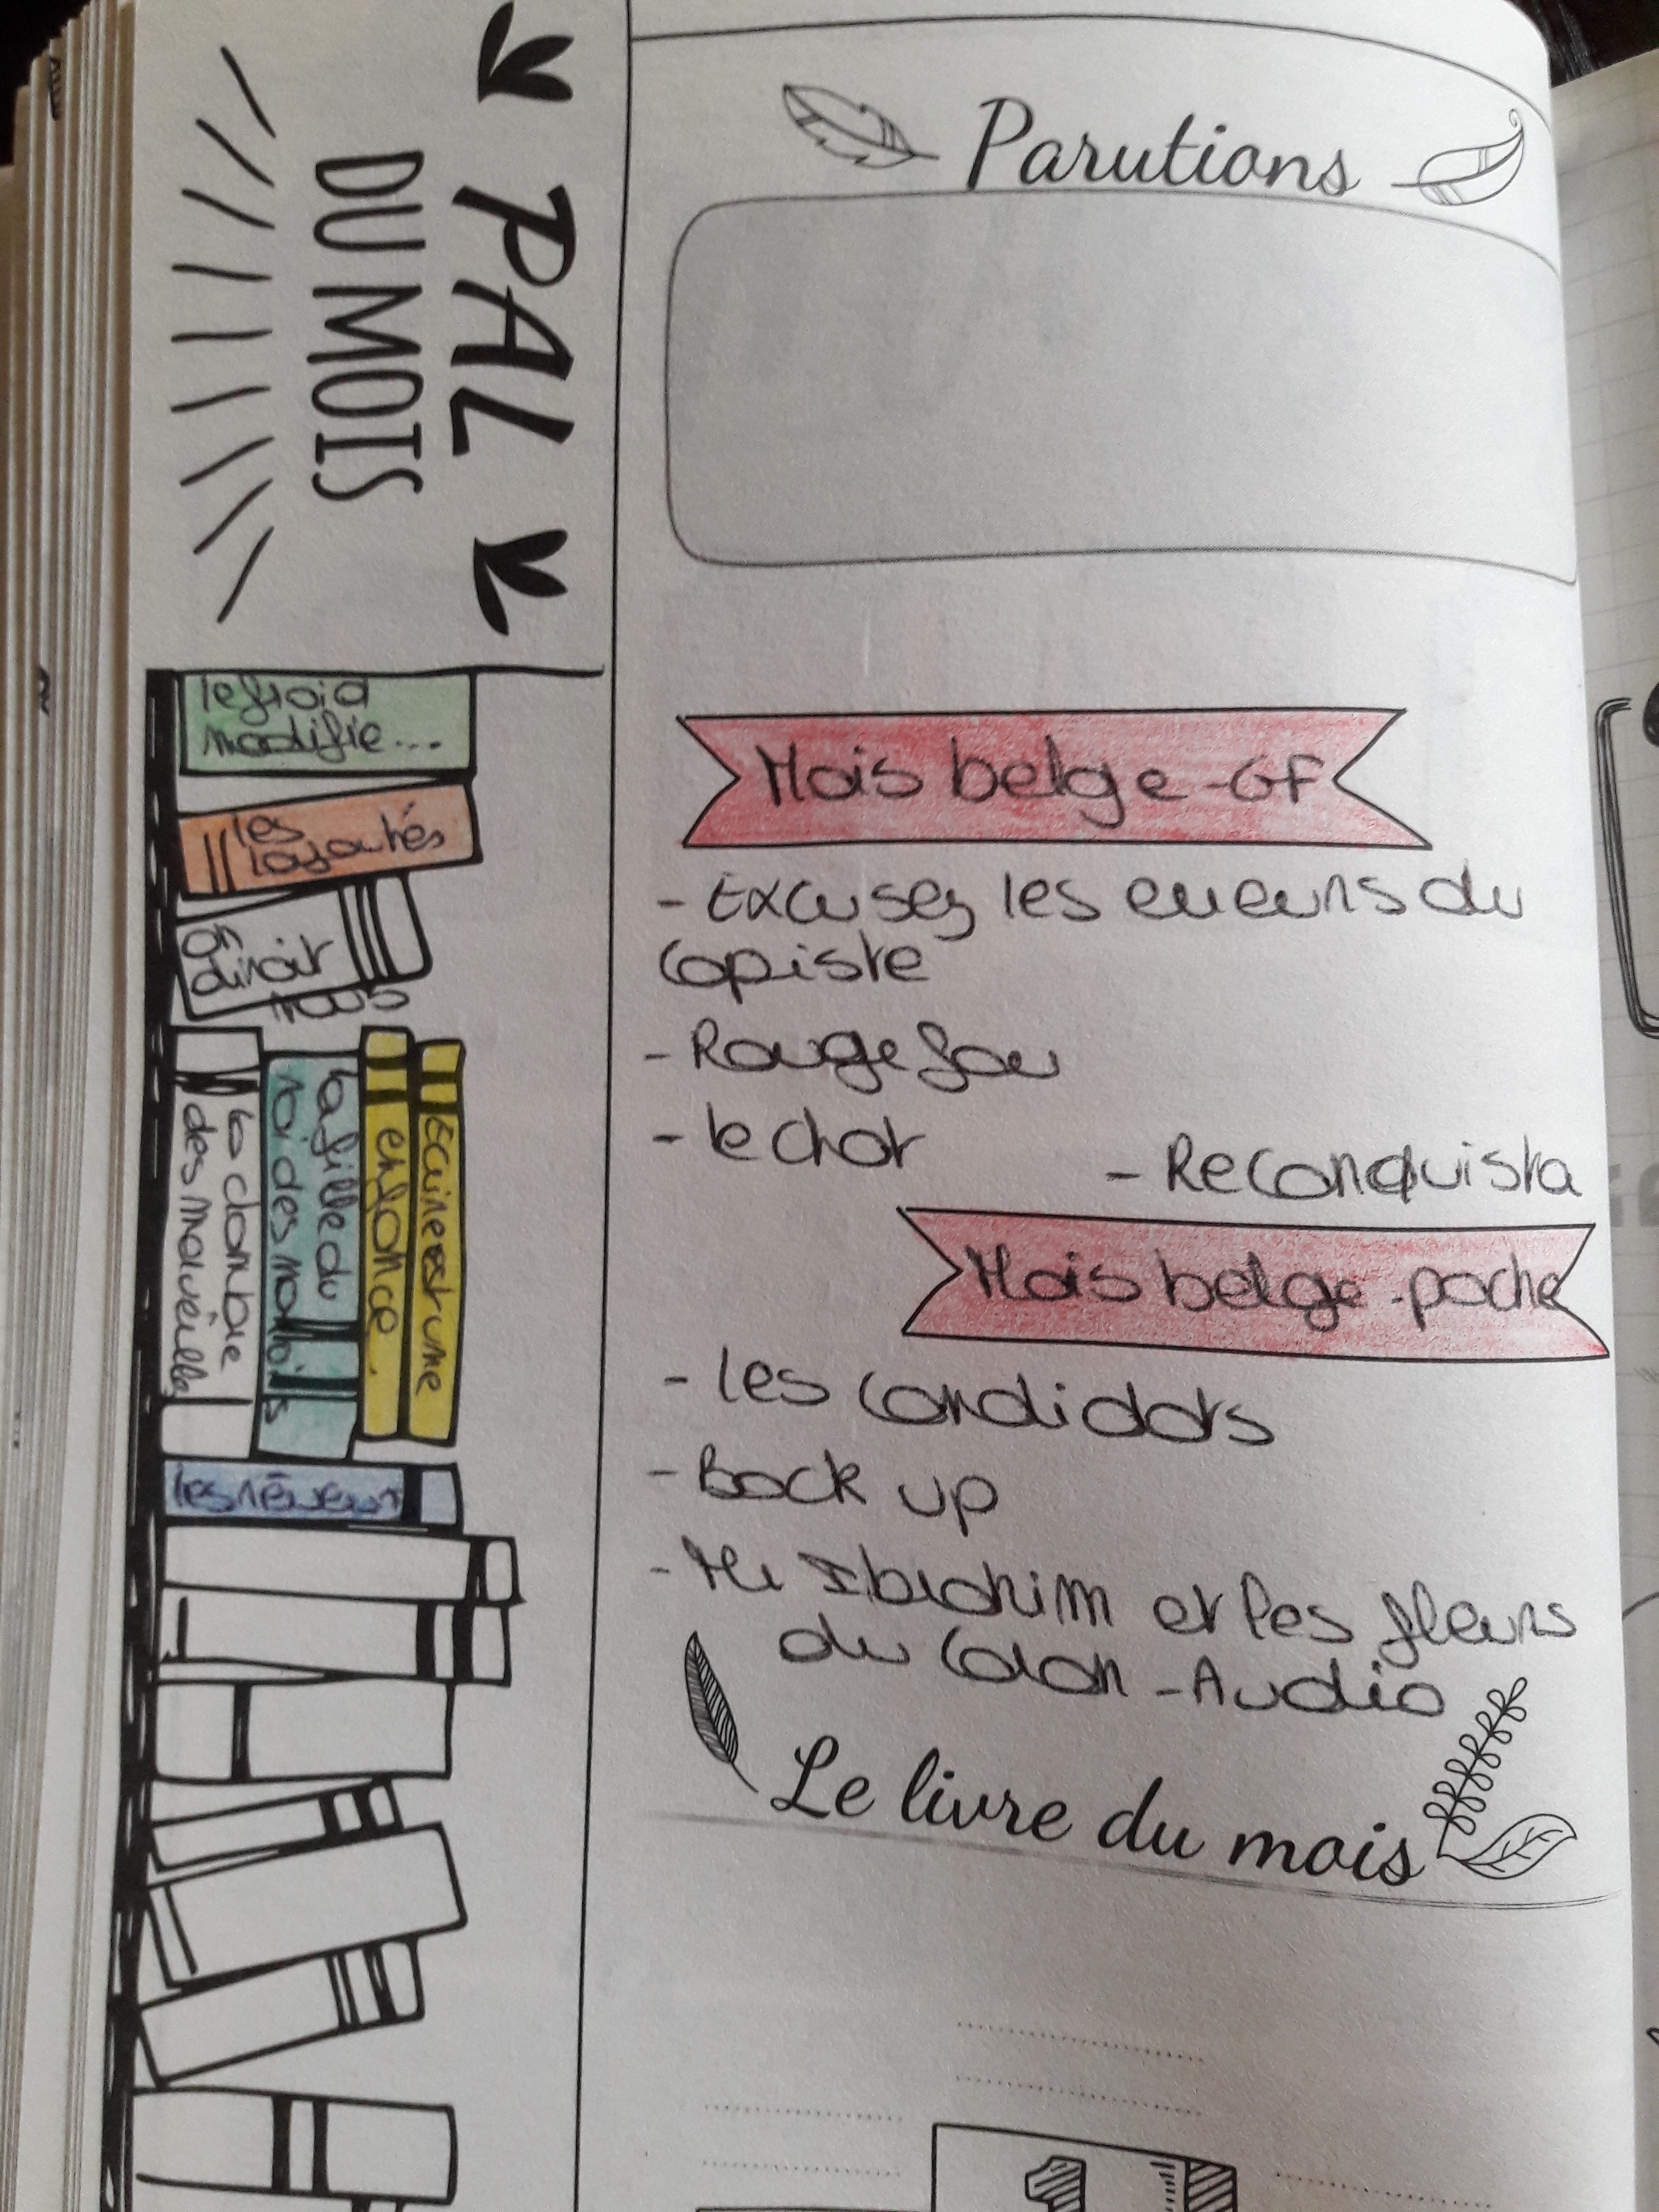 PAL
DU MOIS
le froid
modifie...
les
loyautés
On
dirait
nous
Écrire est une
enfance.
la fille du
roi des marais
la combe
des mauvêilles
les rêveurs
Parutions
Mois belge - GF
- Excusez les erreurs du
copiste
- Rouge fou
- le chat
- Reconquista
Mois belge - poche
- Les candidats
- Back up
- Mr Ibrahim et les fleurs
du Coran - Audio
Le livre du mois
1